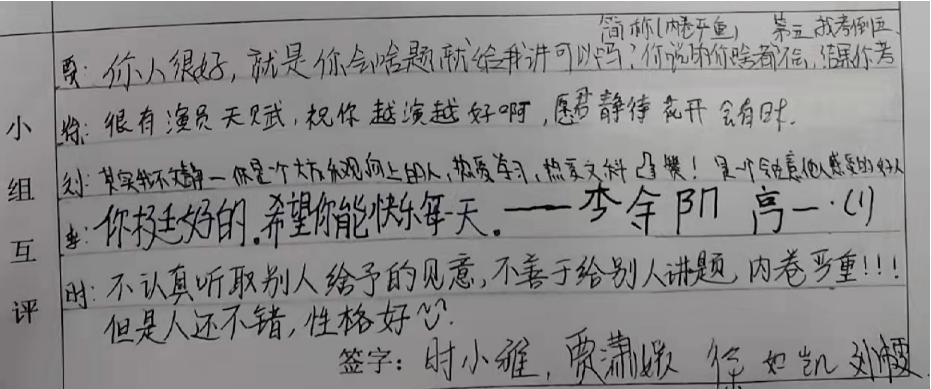 简称(内卷严重) 第五 我考倒五.
贾: 你人很好, 就是你会啥题就给我讲可以吗? 你说的你啥都不会, 结果你考
很有演员天赋, 祝你越演越好啊, 愿君静待花开会有时.
刘: 其实我不文静一你是个大方乐观向上的人, 热爱学习, 热爱文科 是一个会在意他人感受的好人
李: 你挺好的. 希望你能快乐每天. ——李余阳 高一·(1)
时: 不认真听取别人给予的见意, 不善于给别人讲题, 内卷严重!!!
但是人还不错, 性格好
小组互评
签字: 时小雅, 贾潇 徐如凯 刘